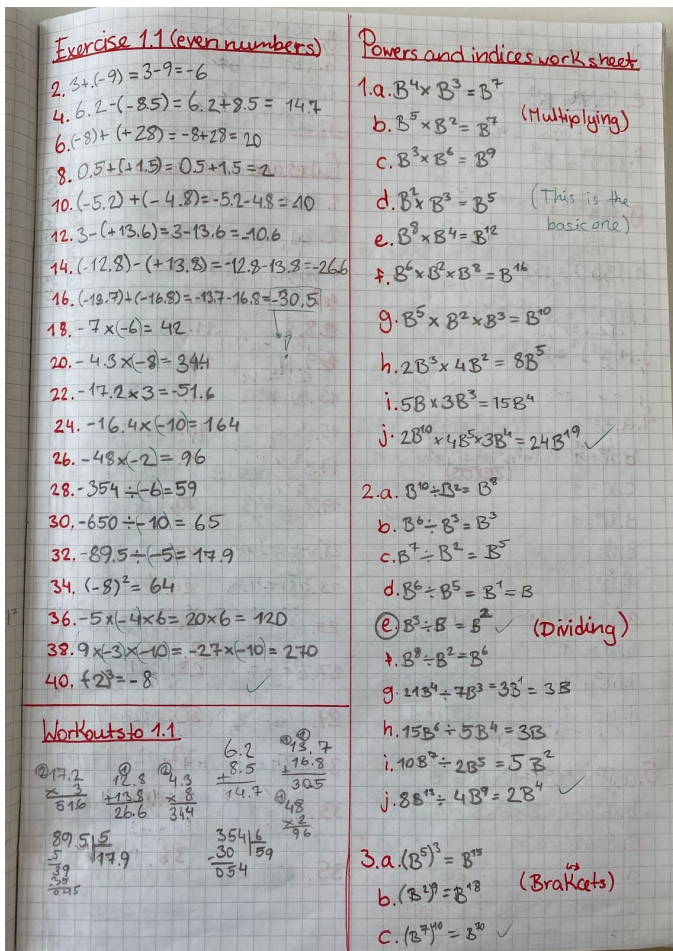 Exercise 1.1 (even numbers)
2. 3+(-9) = 3-9=-6
4. 6.2-(-8.5) = 6.2+8.5 = 14.7
6. (-8)+(+28) = -8+28= 20
8. 0.5+(+1.5)= 0.5+1.5=2
10. (-5.2)+(-4.8)=-5.2-4.8=-10
12. 3-(+13.6)=3-13.6=-10.6
14. (-12.8)-(+13.8)=-12.8-13.8=-26.6
16. (-13.7)+(-16.8)=-13.7-16.8=-30.5
?
18. -7×(-6)= 42
20. -4.3×(-8)= 344
22. -17.2×3=-51.6
24. -16.4×(-10)= 164
26. -48×(-2)= 96
28. -354÷(-6)=59
30. -650÷(-10)= 65
32. -89.5÷(-5)= 17.9
34. (-8)²= 64
36. -5×(-4)×6= 20×6= 120
38. 9×(-3)×(-10)= -27×(-10)= 270
40. (-2)³=-8
Workouts to 1.1
17.2
× 3
516
12.8
+13.8
26.6
4.3
× 8
344
6.2
+8.5
14.7
13.7
+16.8
305
48
×2
96
89.5 5
17.9
354 6
-30 59
054
Powers and indices worksheet
1.a. B⁴× B³ =B⁷
b. B⁵×B²= B⁷ (Multiplying)
c. B³×B⁶= B⁹
d. B²× B³ = B⁵ (This is the
basic one)
e. B⁸×B⁴= B¹²
f. B⁶×B²×B⁸ = B¹⁶
g. B⁵ × B² × B³= B¹⁰
h. 2B³× 4B² = 8B⁵
i. 5B×3B³=15B⁴
j. 2B¹⁰×4B⁵×3B⁴=24B¹⁹
2.a. B¹⁰÷B²= B⁸
b. B⁶÷B³=B³
c. B⁷÷B² = B⁵
d. B⁶÷B⁵ = B¹= B
e. B³÷B = B² (Dividing)
f. B⁸÷B²=B⁶
g. 21B⁴÷7B³=3B¹= 3B
h. 15B⁶÷5B⁴=3B
i. 10B⁷÷2B⁵=5B²
j. 8B¹³÷4B⁹=2B⁴
3.a. (B⁵)³ = B¹⁵
b. (B²)⁹=B¹⁸ (BraKcets)
c. (B⁷)¹⁰ = B⁷⁰